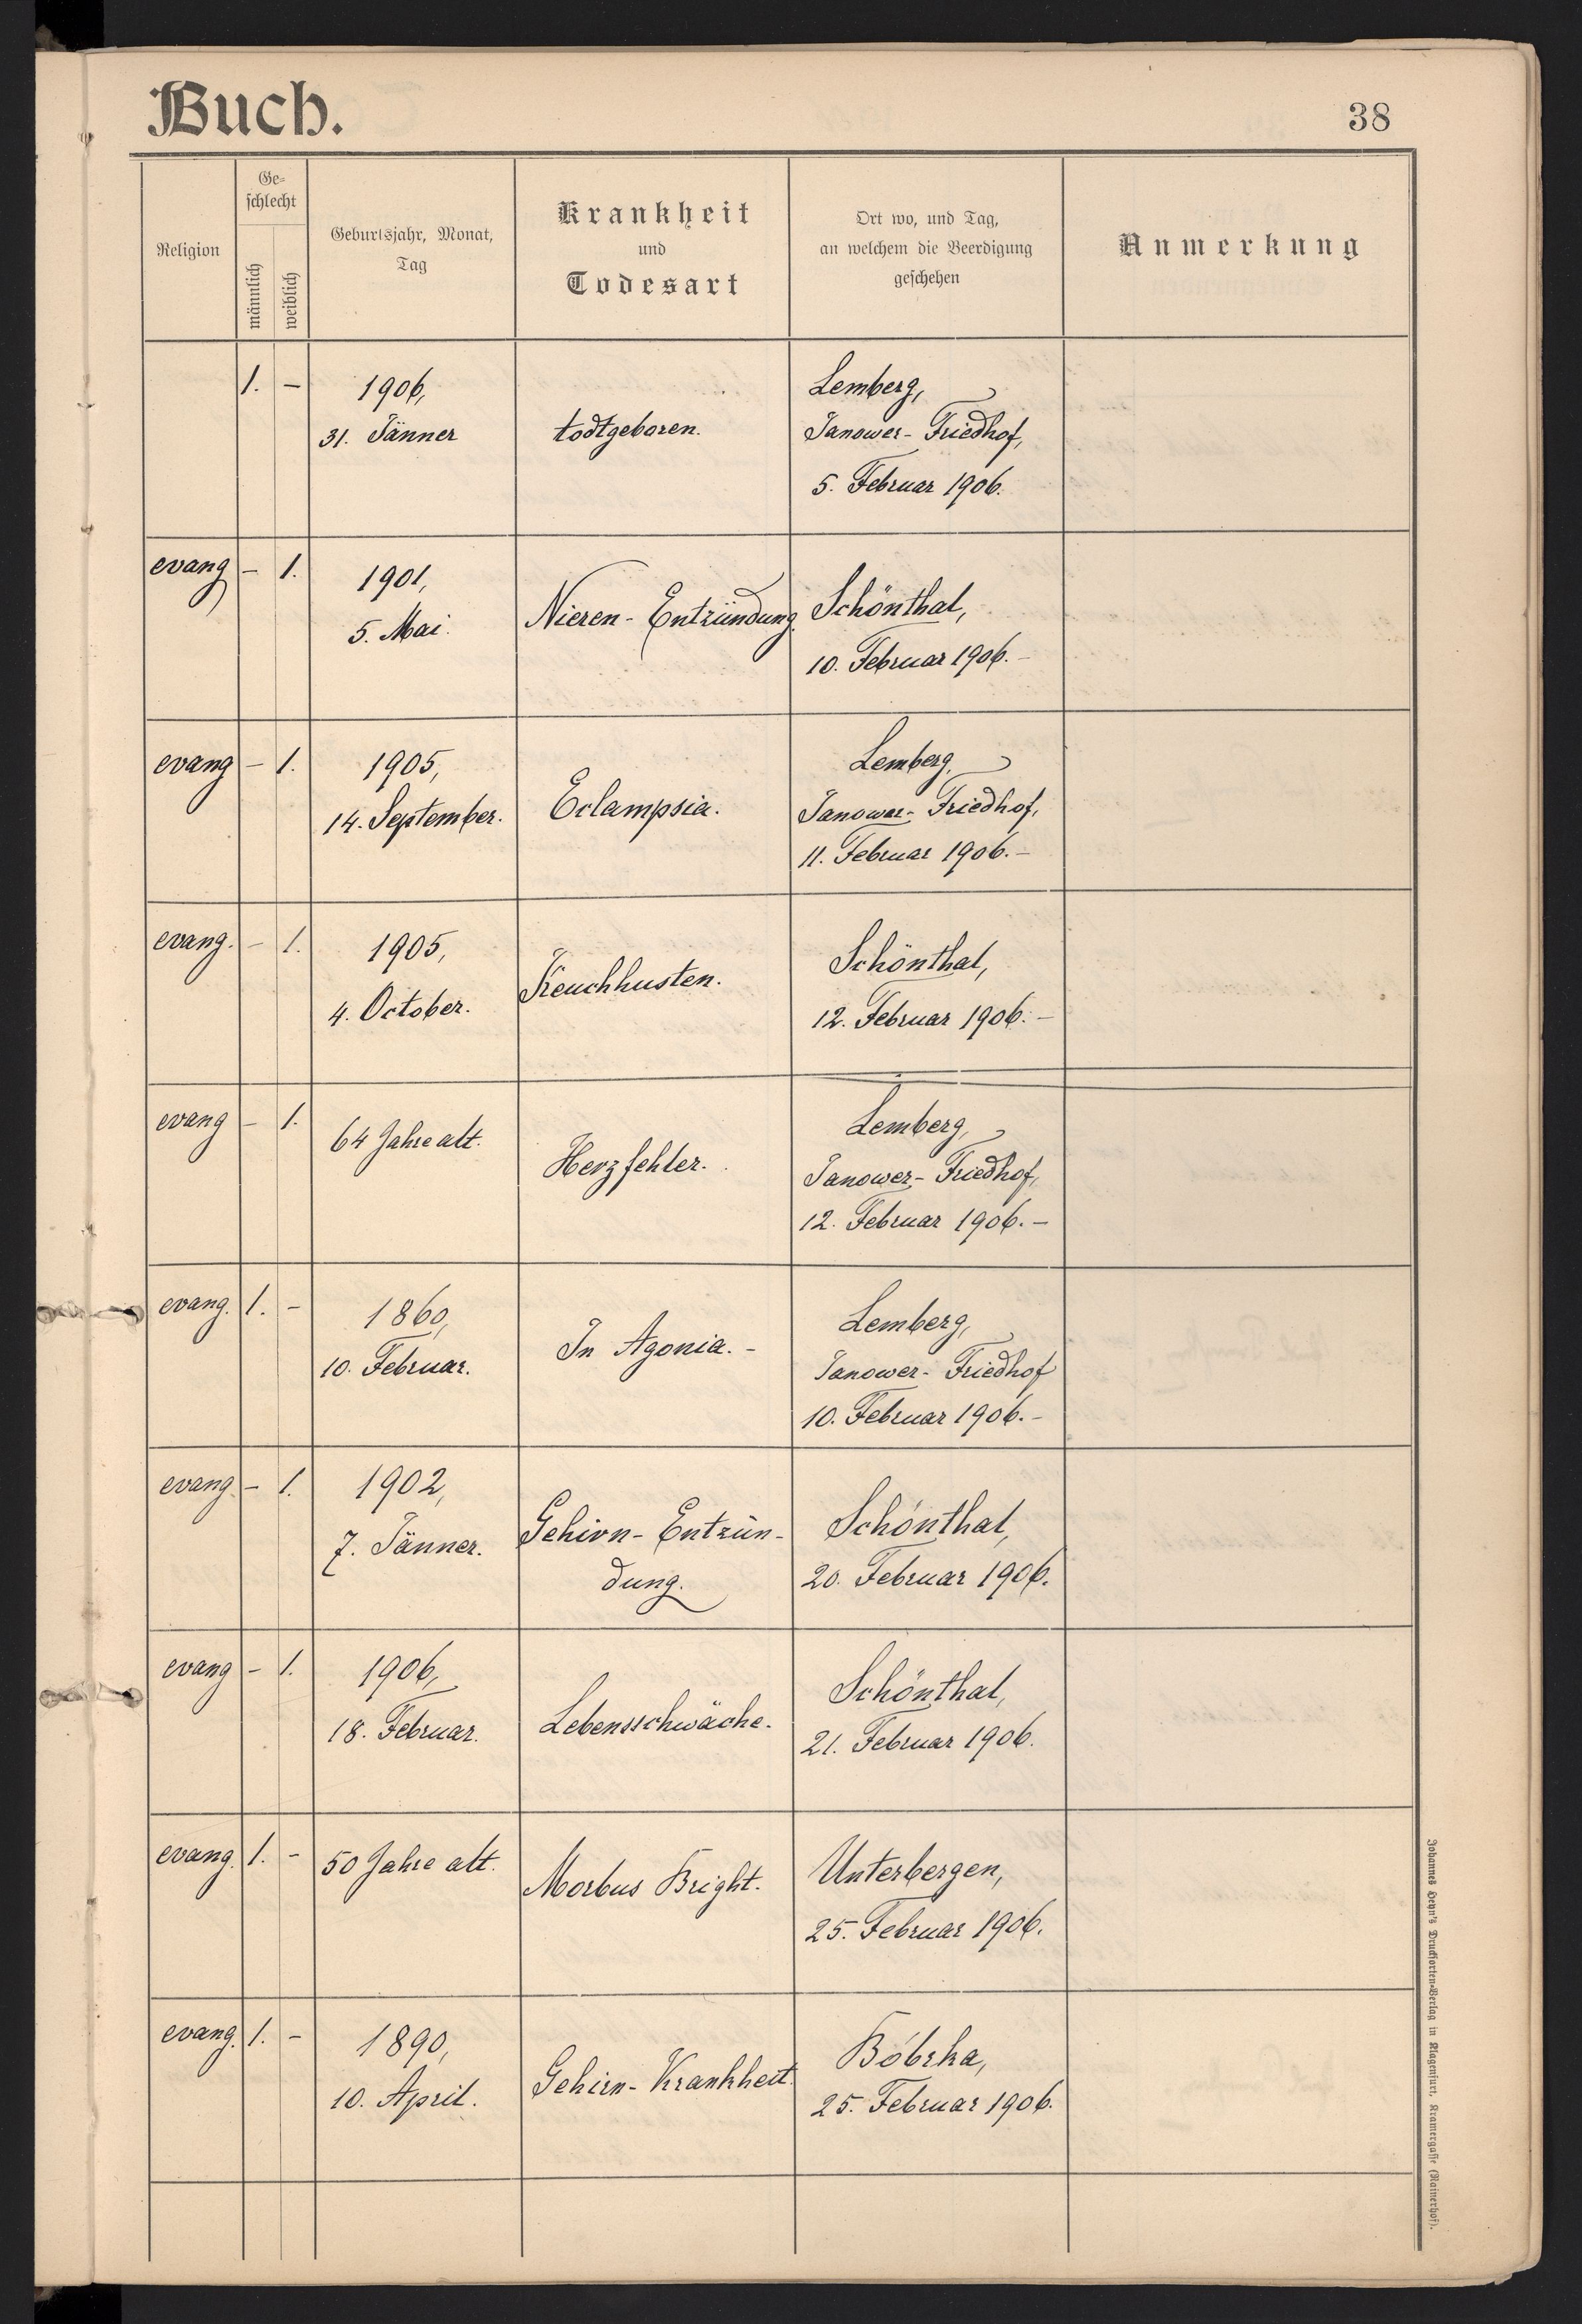 Buch.
38
Religion
Ge-
schlecht
männlich
weiblich
Geburtsjahr, Monat,
Tag
Krankheit
und
Todesart
Ort wo, und Tag,
an welchem die Beerdigung
geschehen
Anmerkung
1. –
1906,
31. Jänner
todtgeboren.
Lemberg,
Janower-Friedhof,
5. Februar 1906.
evang – 1.
1901,
5. Mai.
Nieren-Entzündung.
Schönthal,
10. Februar 1906. –
evang – 1.
1905,
14. September.
Eclampsia.
Lemberg,
Janower-Friedhof,
11. Februar 1906. –
evang. – 1.
1905,
4. October.
Keuchhusten.
Schönthal,
12. Februar 1906. –
evang – 1.
64 Jahre alt.
Herzfehler.
Lemberg,
Janower-Friedhof,
12. Februar 1906. –
evang. 1. –
1860,
10. Februar.
In Agonia. –
Lemberg,
Janower-Friedhof
10. Februar 1906. –
evang. – 1.
1902,
7. Jänner.
Gehirn-Entzün-
dung.
Schönthal,
20. Februar 1906.
evang – 1.
1906,
18. Februar.
Lebensschwäche.
Schönthal,
21. Februar 1906.
evang. 1. –
50 Jahre alt.
Morbus Bright.
Unterbergen,
25. Februar 1906.
evang. 1. –
1890,
10. April.
Gehirn-Krankheit.
Bóbrka,
25. Februar 1906.
Johannes Heyn's Drucksorten-Verlag in Klagenfurt, Kramergasse (Rainerhof).